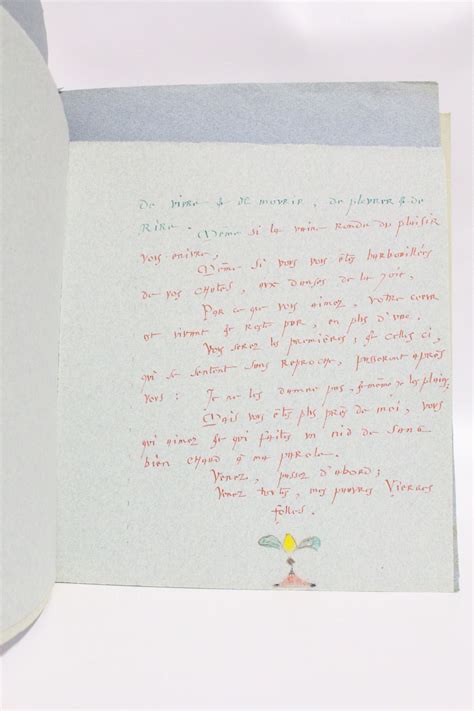 De vivre & de movrir, de plevrer & de
Rire.
Même si la vaine ronde du plaisir
vous enivre,
Même si vous vous êtes barbouillées
de vos chutes, aux danses de la joie,
Par ce que vous aimez, votre coeur
est vivant & reste pur, en plus d'une.
Vous serez les premières; & celles ci,
qui se sentent sans reproche, passeront après
vous: Je ne les damne pas, & même je les plains
Mais vous êtes plus près de moi, vous
qui aimez & qui faites un nid de sang
bien chaud à ma parole.
Venez, passez d'abord;
Venez toutes, mes pauvres Vierges
folles.